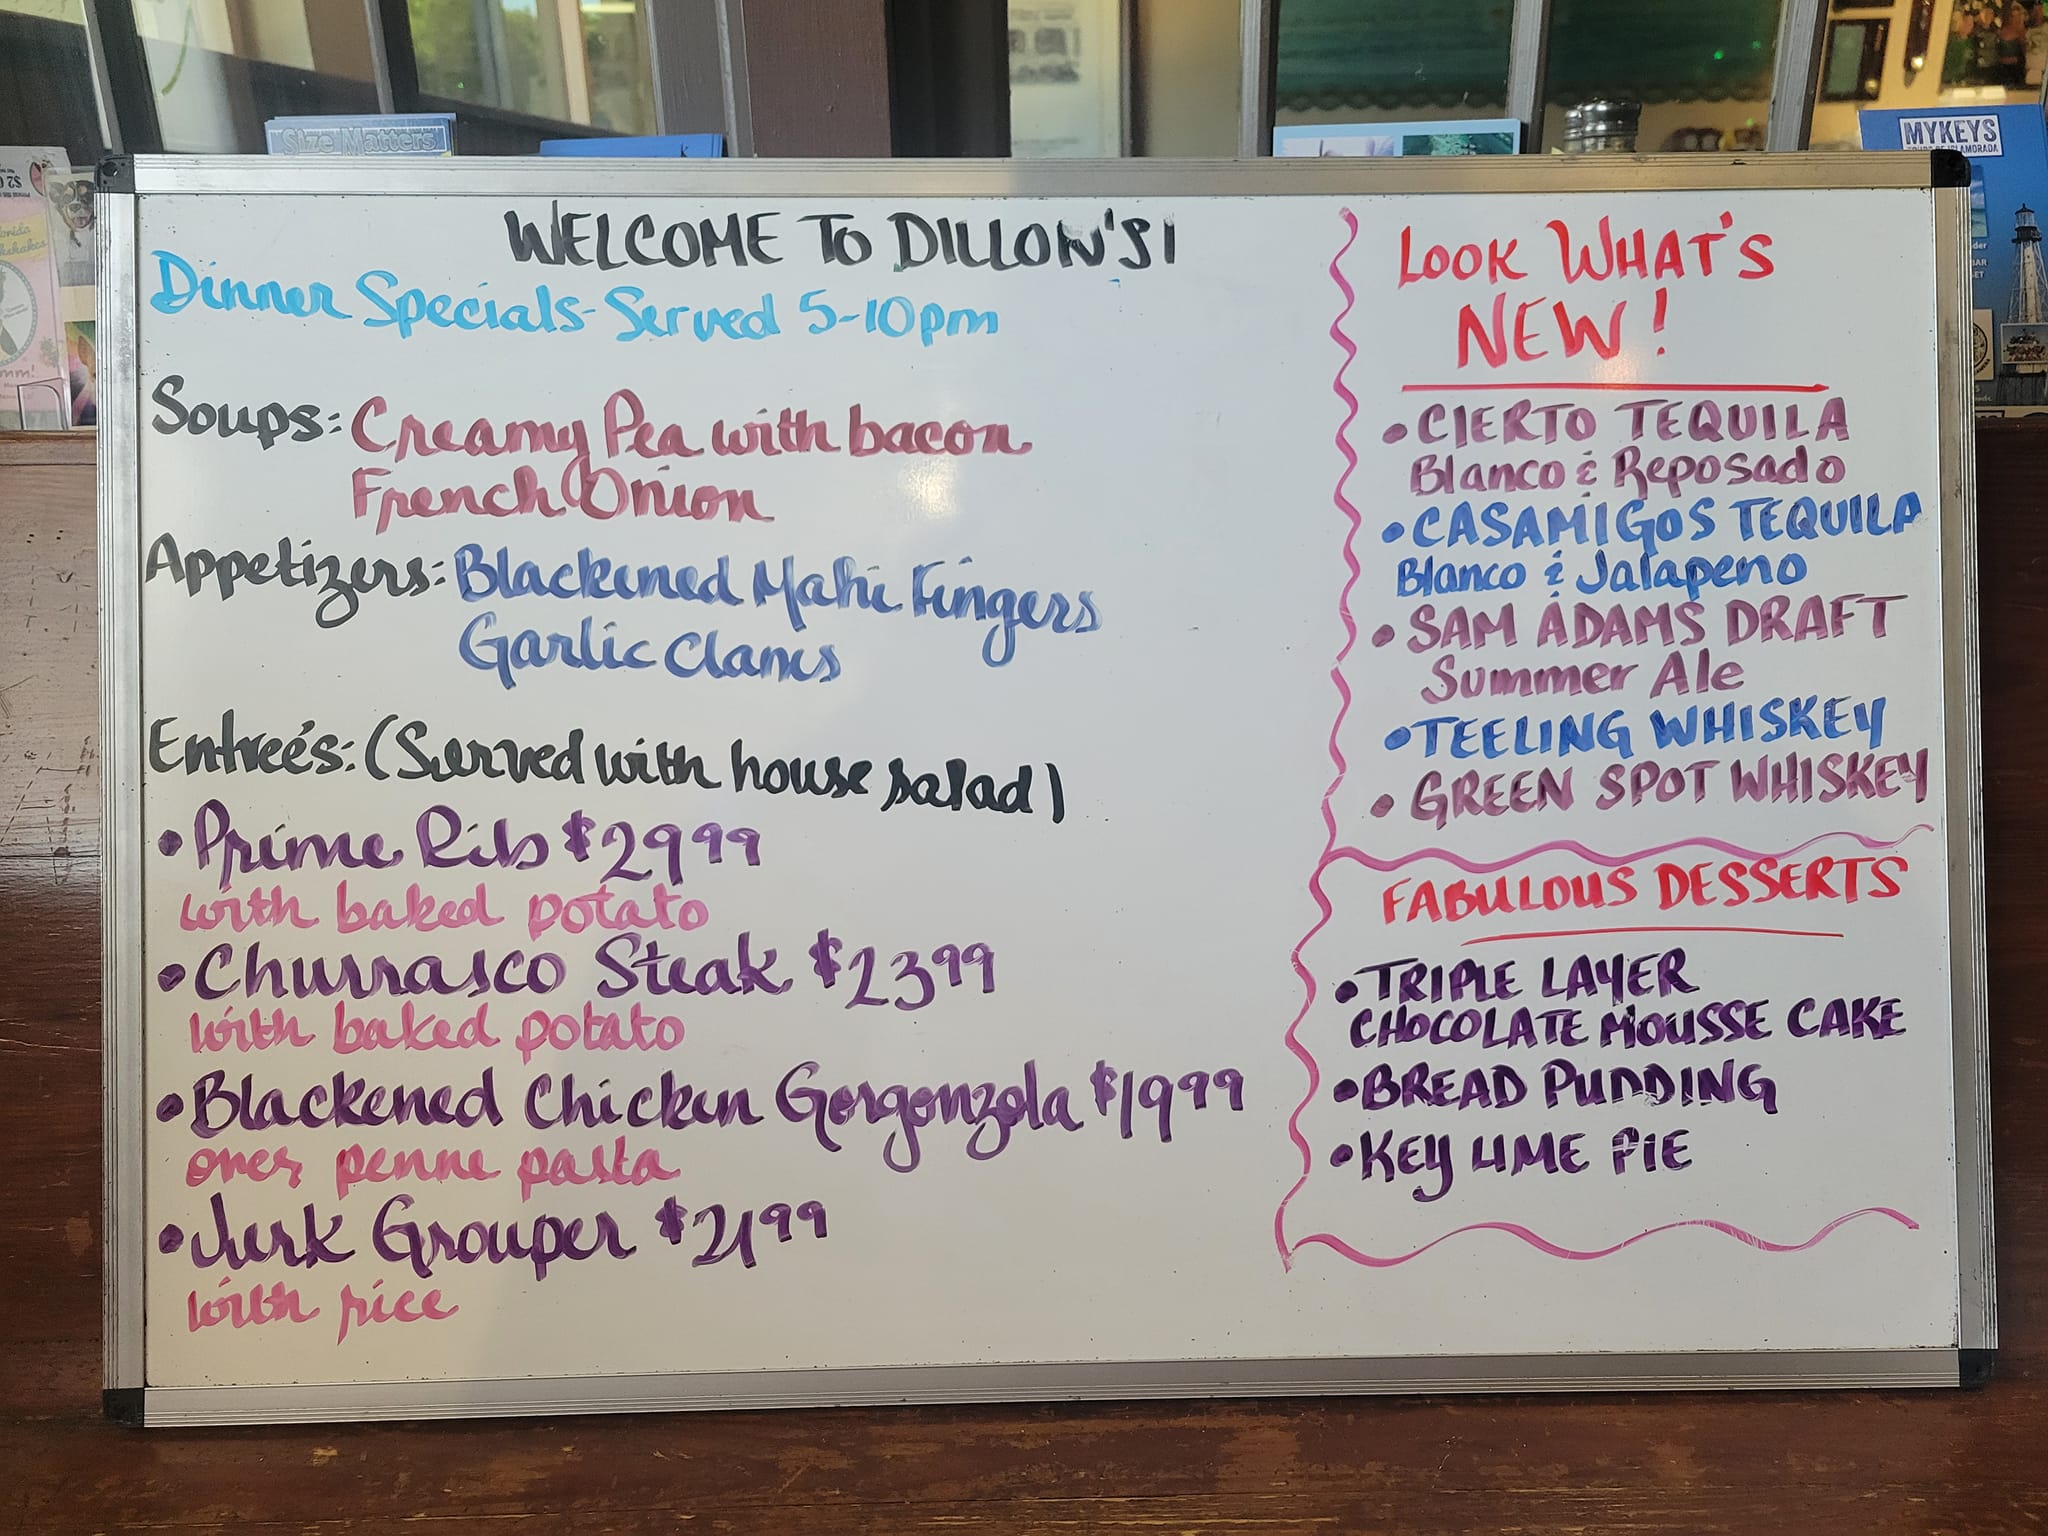 Size Matters
MYKEYS
WELCOME TO DILLON'S!
Dinner Specials-Served 5-10pm
Soups: Creamy Pea with bacon
French Onion
Appetizers: Blackened Mahi Fingers
Garlic Clams
Entreé's: (Served with house salad)
• Prime Rib $29 99
with baked potato
• Churrasco Steak $23 99
with baked potato
• Blackened Chicken Gorgonzola $19 99
over penne pasta
• Jerk Grouper $21 99
with rice
LOOK WHAT'S
NEW!
• CIERTO TEQUILA
Blanco & Reposado
• CASAMIGOS TEQUILA
Blanco & Jalapeno
• SAM ADAMS DRAFT
Summer Ale
• TEELING WHISKEY
• GREEN SPOT WHISKEY
FABULOUS DESSERTS
• TRIPLE LAYER
CHOCOLATE MOUSSE CAKE
• BREAD PUDDING
• KEY LIME PIE